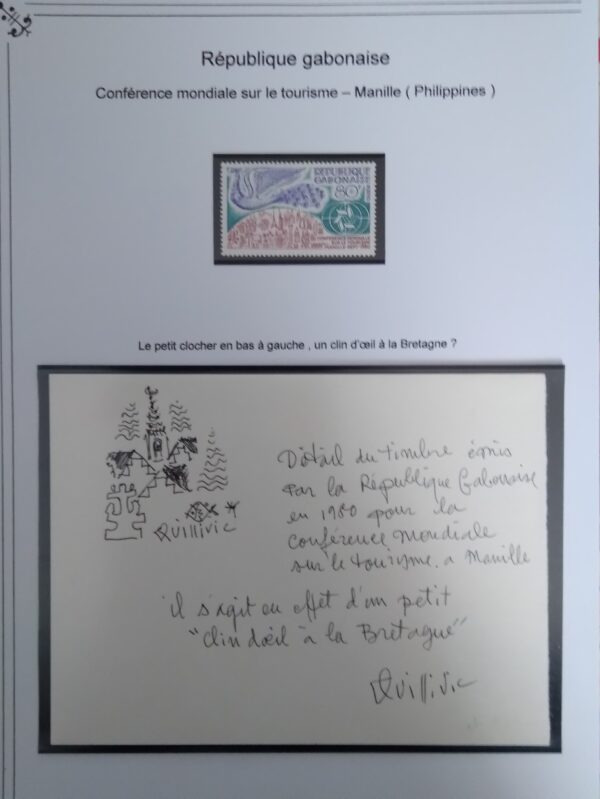 République gabonaise
Conférence mondiale sur le tourisme – Manille ( Philippines )
REPUBLIQUE
GABONAISE
80F
Le petit clocher en bas à gauche , un clin d'œil à la Bretagne ?
Quillivic
Détail du timbre émis
par la République Gabonaise
en 1980 pour la
conférence mondiale
sur le tourisme. a Manille
il s'agit en effet d'un petit
"clin d'œil à la Bretagne"
Quillivic